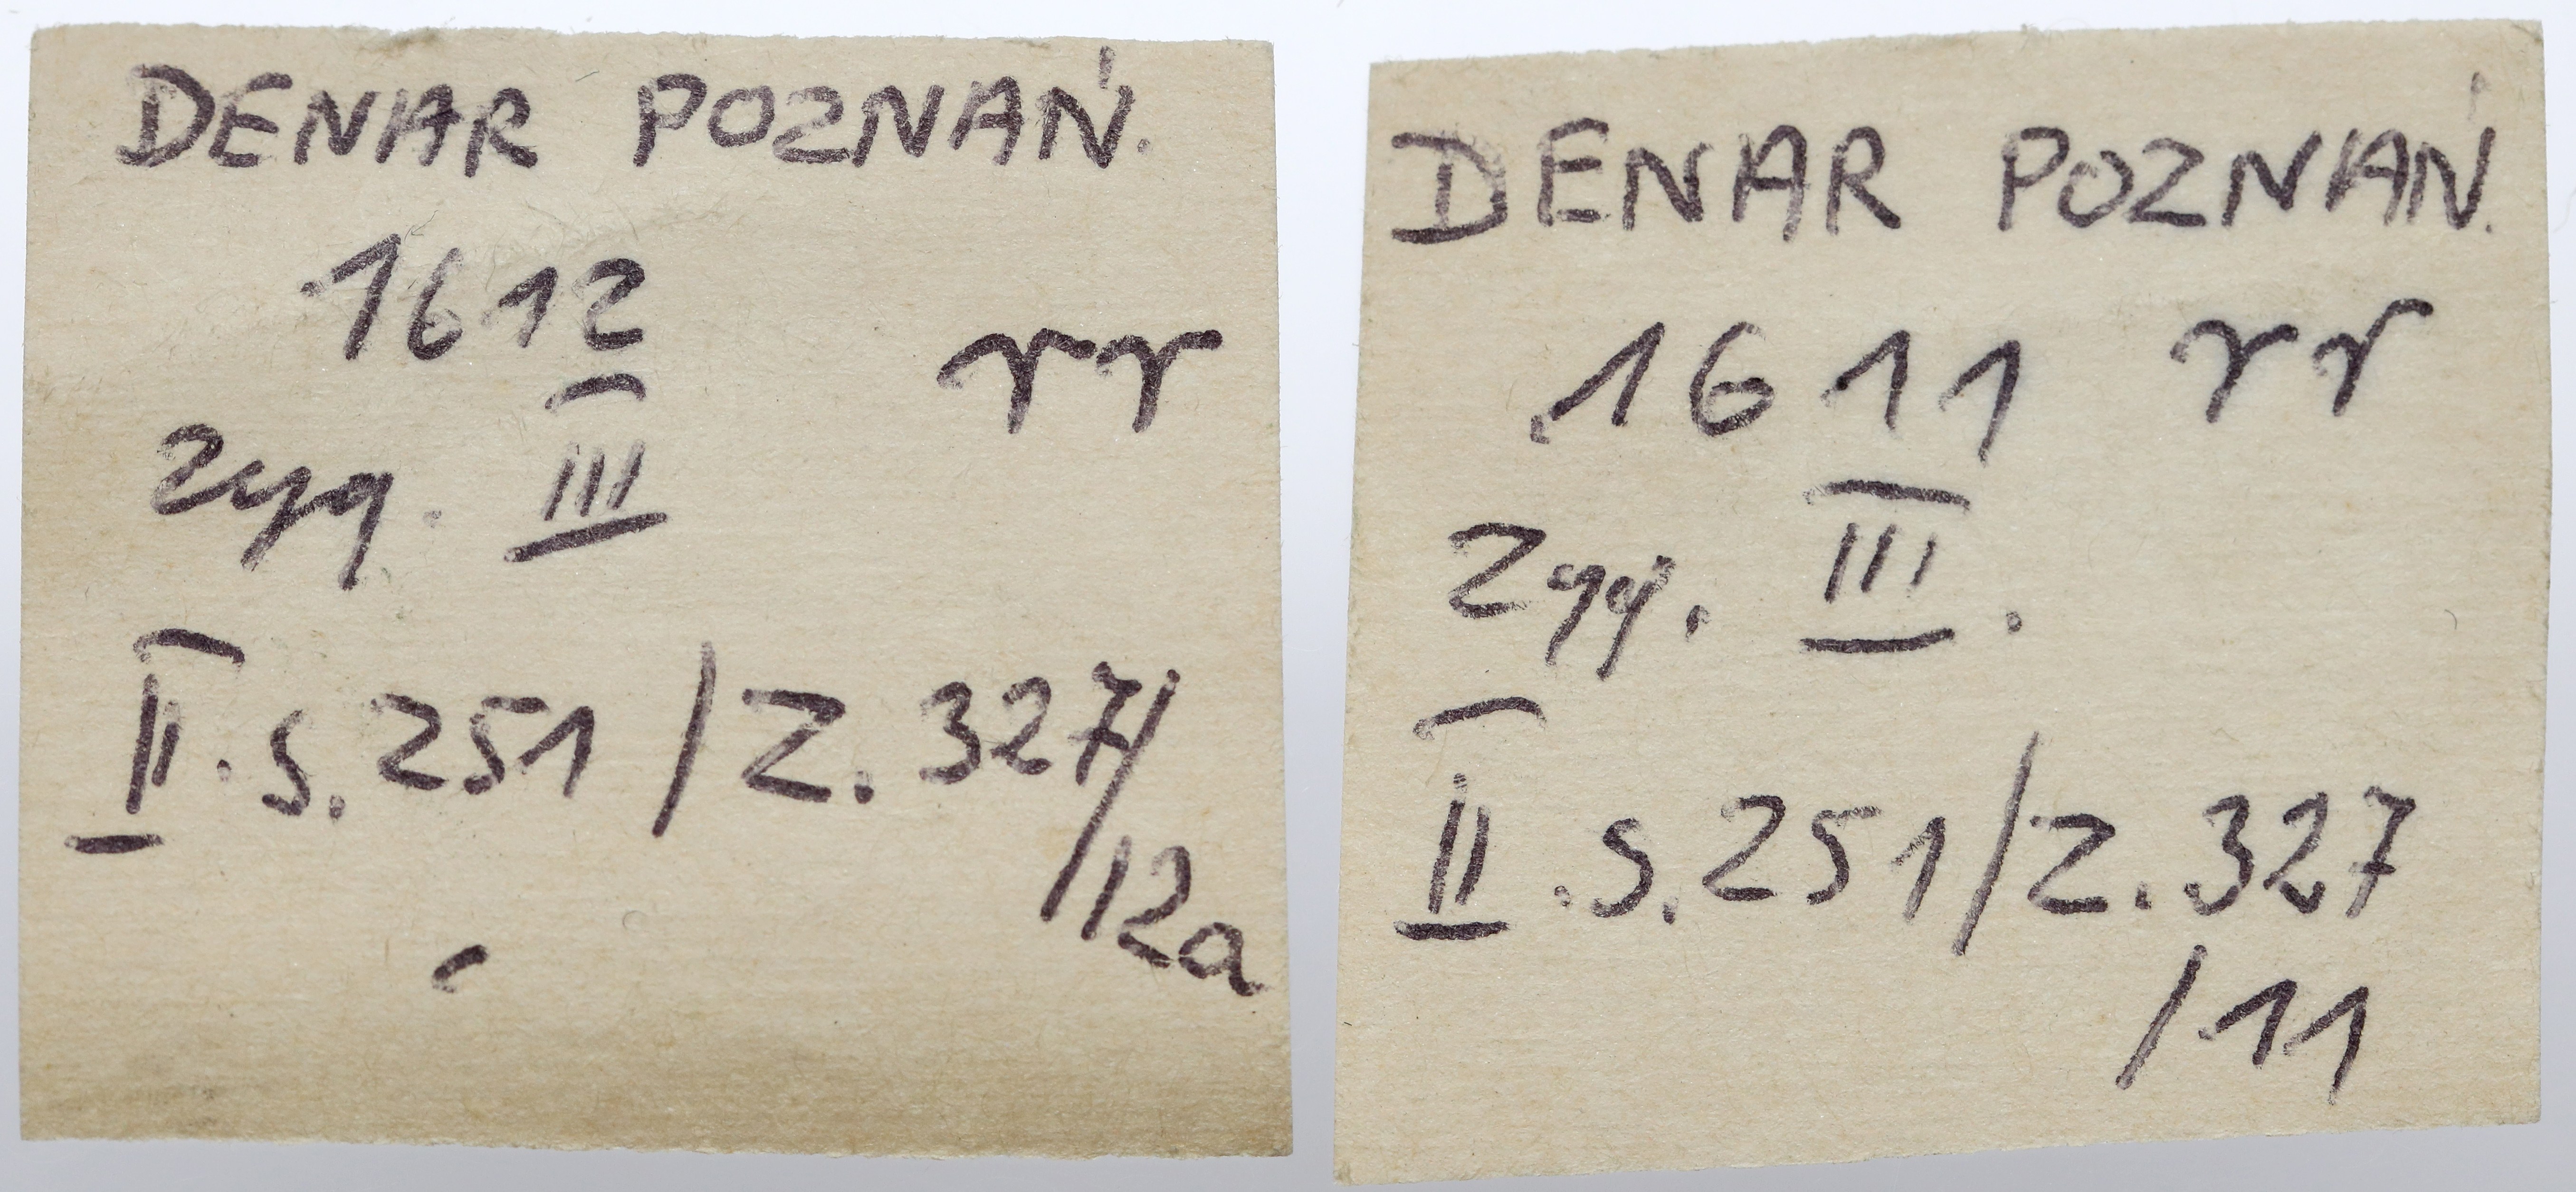 DENAR POZNAŃ.
1612 rr
zyg. III
II. s. 251 / Z. 327/
12a
DENAR POZNAŃ.
1611 rr
Zyg. III.
II. s. 251 / Z. 327
/11